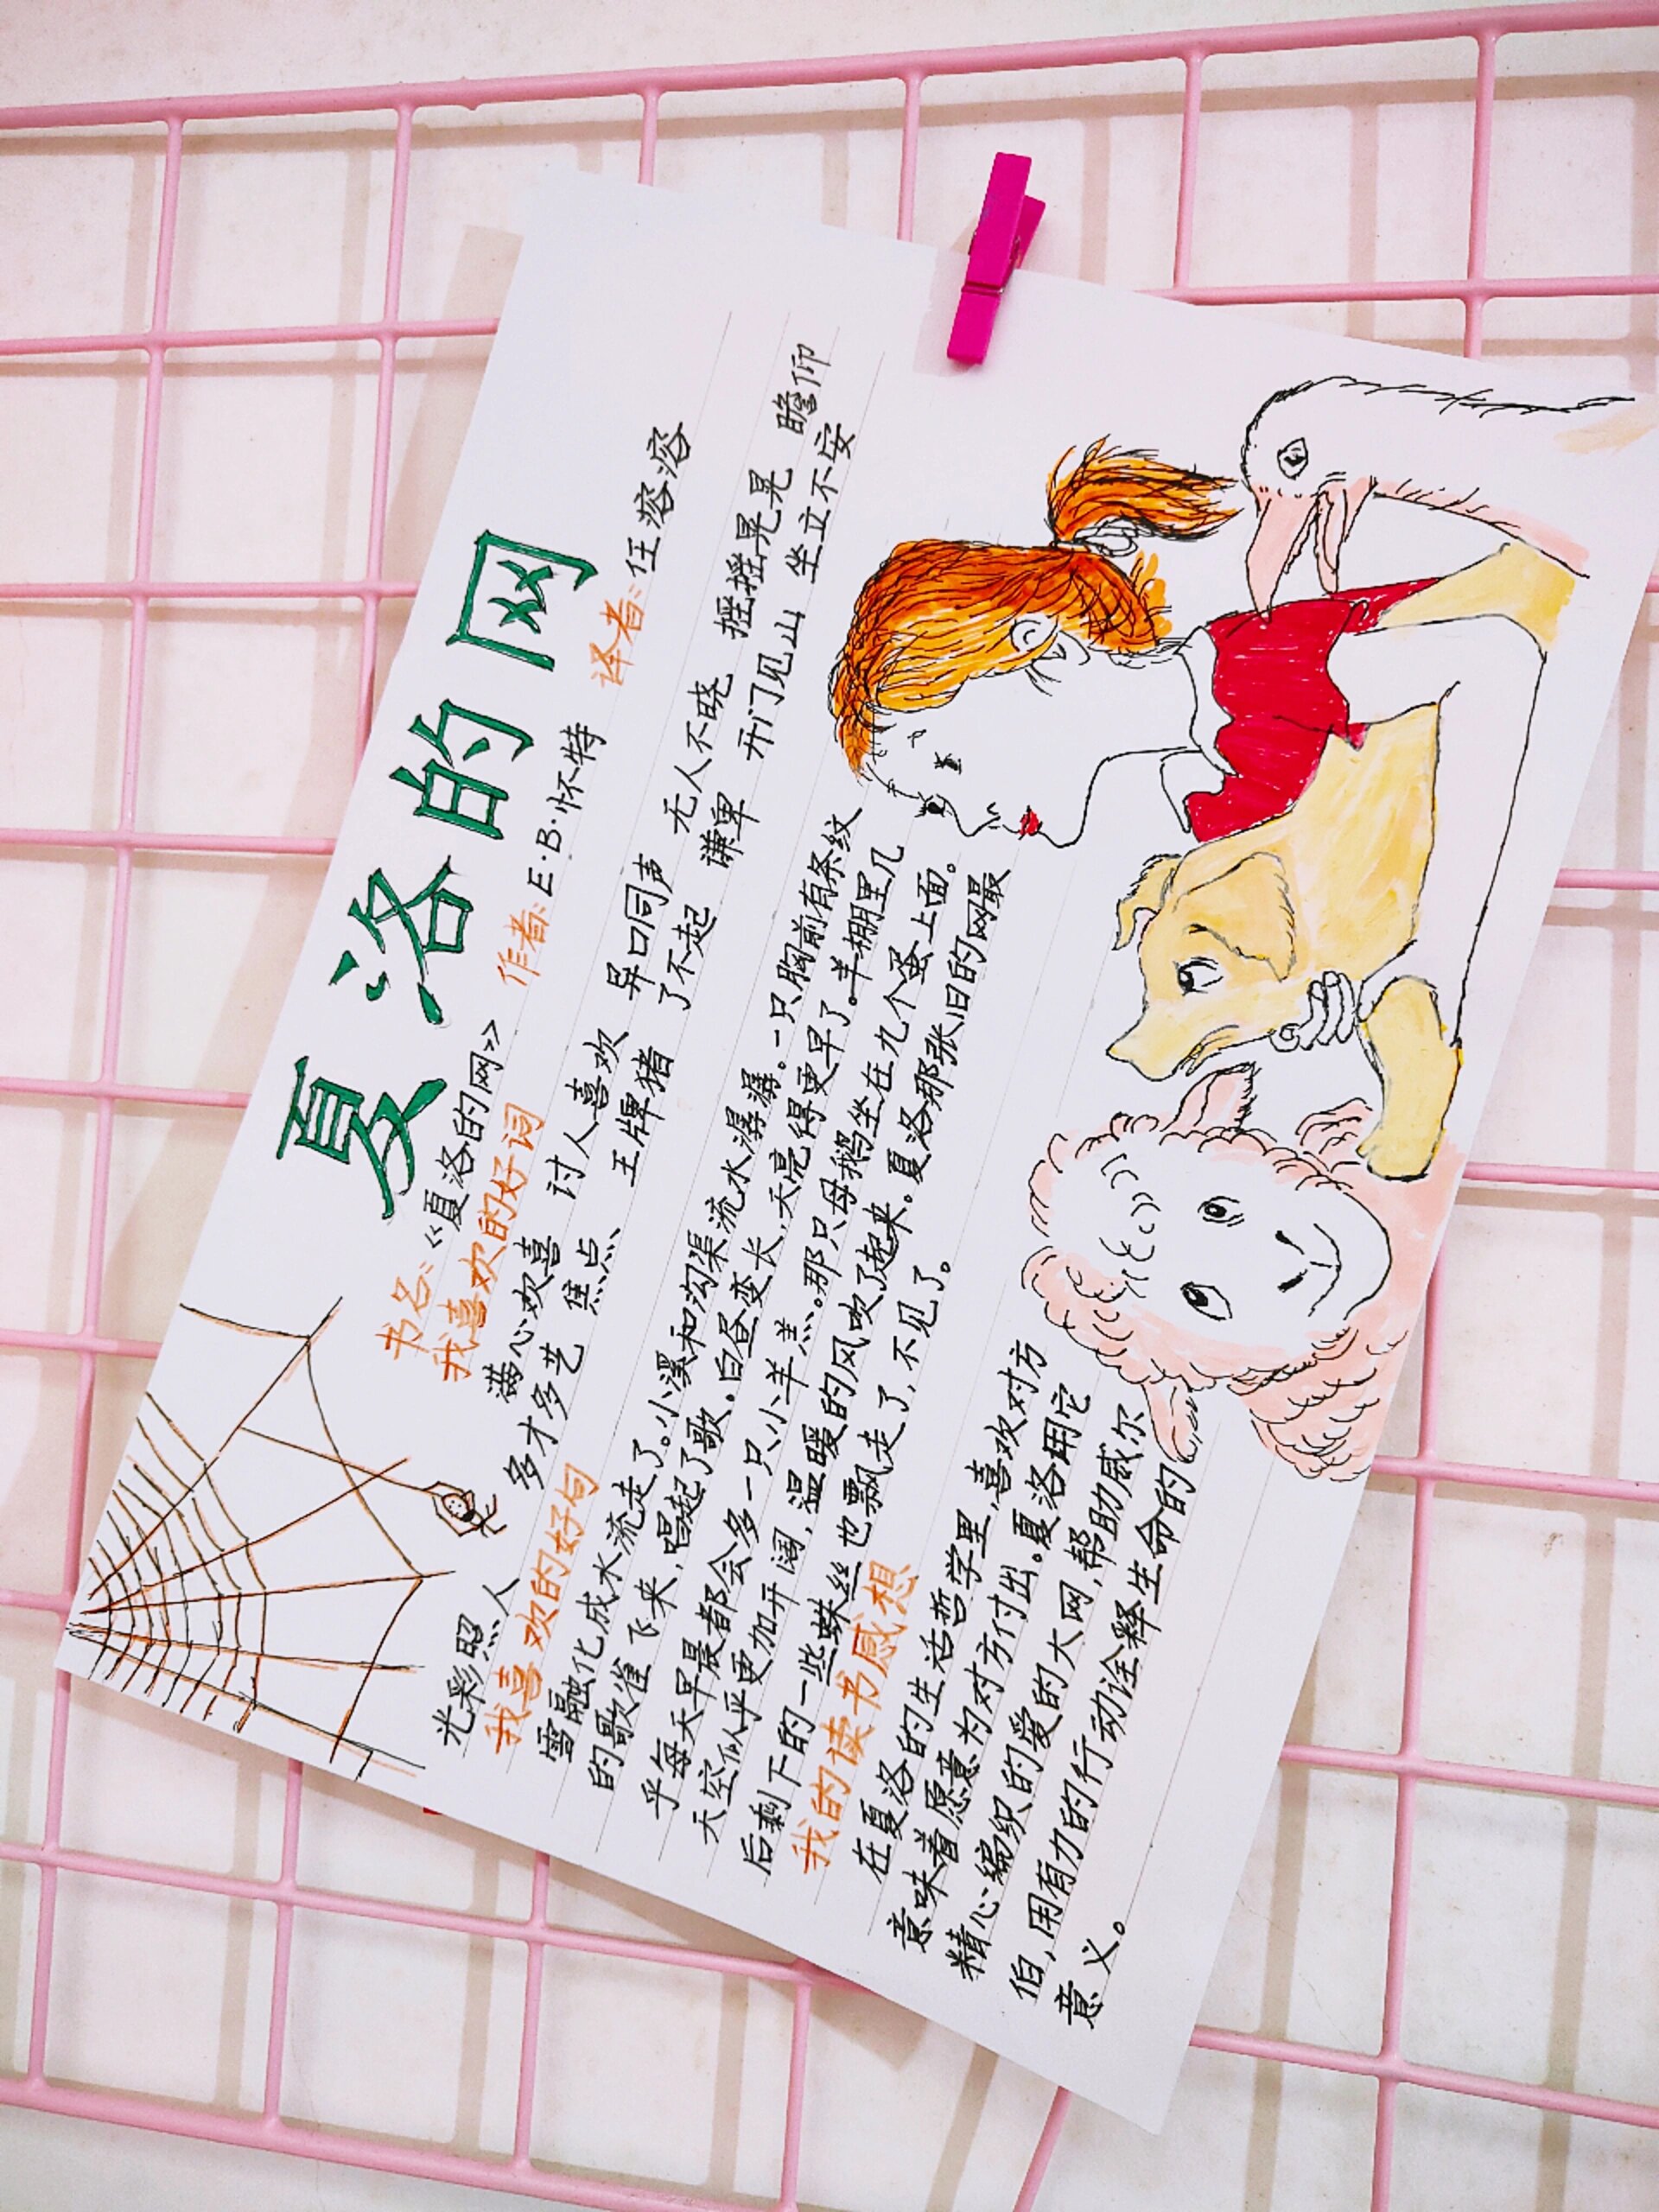 夏洛的网
书名:《夏洛的网》 作者:E·B·怀特 译者:任溶溶
我喜欢的好词
满心欢喜 讨人喜欢 异口同声 无人不晓 摇摇晃晃 瞻仰
光彩照人 多才多艺 焦点 王牌猪 了不起 谦卑 开门见山 坐立不安
我喜欢的好句
雪融化成水流走了。小溪和沟渠流水潺潺。一只胸前有条纹
的歌雀飞来,唱起了歌。白昼变长,天亮得更早了。羊棚里几
乎每天早晨都会多一只小羊羔。那只母鹅坐在九个蛋上面。
天空似乎更加开阔,温暖的风吹了起来。夏洛那张旧的网最
后剩下的一些蛛丝也飘走了,不见了。
我的读书感想
在夏洛的生活哲学里,喜欢对方
意味着愿意为对方付出。夏洛用它
精心编织的爱的大网,帮助威尔
伯,用有力的行动诠释生命的
意义。